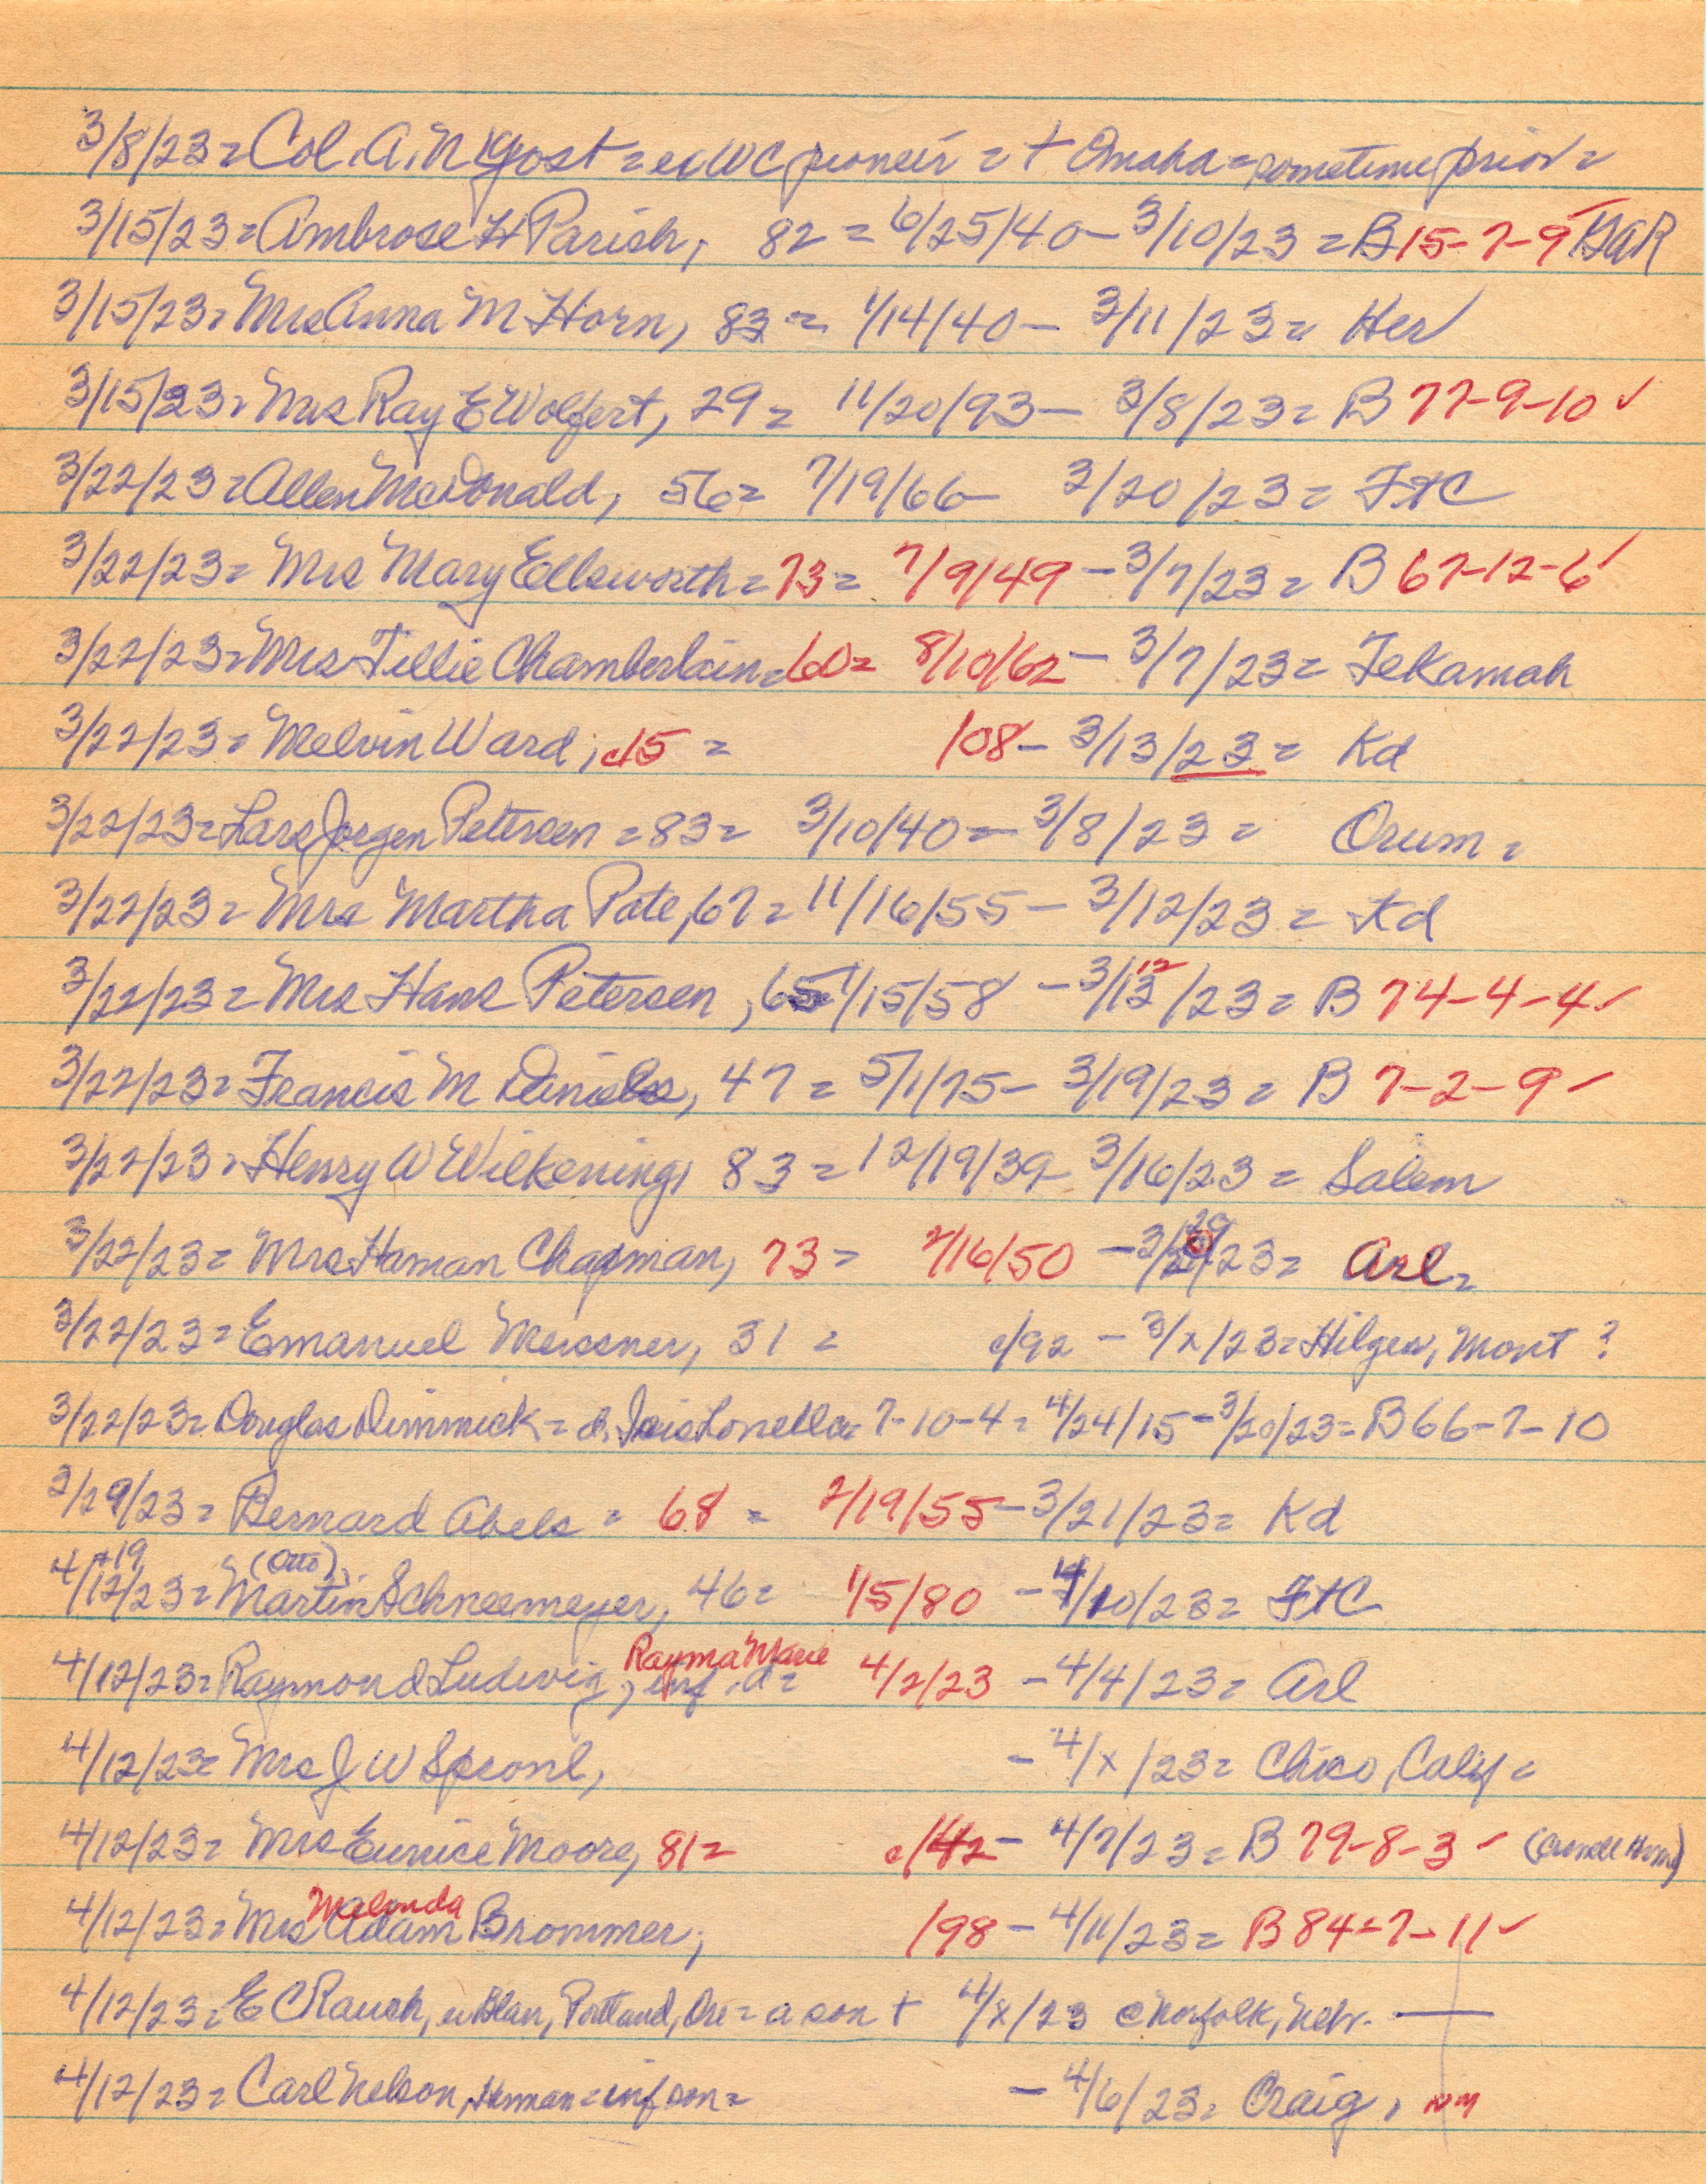 3/8/23= Col. A. N Yost = ex WC pioneer = + Omaha = sometime prior =
3/15/23= Ambrose H Parish, 82 = 6/25/40 - 3/10/23 = B 15-7-9 GAR
3/15/23= Mrs Anna M Horn, 83 = 1/14/40 - 3/11/23 = Her
3/15/23= Mrs Ray E Wolfert, 29 = 11/20/93 - 3/8/23 = B 77-9-10 ✓
3/22/23= Allen McDonald, 56 = 7/19/66 - 3/20/23 = FtC
3/22/23= Mrs Mary Ellsworth = 73 = 7/9/49 - 3/7/23 = B 67-12-6 ✓
3/22/23= Mrs Tillie Chamberlain = 60 = 8/10/62 - 3/7/23 = Tekamah
3/22/23= Melvin Ward, c15 = /08 - 3/13/23 = Kd
3/22/23= Lars Joegen Petersen = 83 = 3/10/40 - 3/8/23 = Orum =
3/22/23= Mrs Martha Pate, 67 = 11/16/55 - 3/12/23 = Kd
3/22/23= Mrs Hans Petersen, 65 1/15/58 - 3/13 12 /23 = B 74-4-4 ✓
3/22/23= Francis M Daniels, 47 = 5/1/75 - 3/19/23 = B 7-2-9 ✓
3/22/23= Henry W Wilkening, 83 = 12/19/39 - 3/16/23 = Salem
3/22/23= Mrs Haman Chapman, 73 = 2/16/50 - 3/20/23 = Arl =
3/22/23= Emanuel Meissner, 31 = c/92 - 3/x/23 = Hilger, Mont ?
3/22/23= Douglas Dimmick = d. Lonella = 7-10-4 = 4/24/15 - 3/20/23 = B 66-7-10
3/29/23= Bernard Abels = 68 = 2/19/55 - 3/21/23 = Kd
4/12/23 +19 = (Otto) Martin Schneemeyer, 46 = 1/5/80 - 4/10/23 = FtC
4/12/23= Raymond Ludwig, inf. d = Rayma Marie 4/2/23 - 4/4/23 = Arl
4/12/23= Mrs J W Sproul, - 4/x/23 = Chico, Calif =
4/12/23= Mrs Eunice Moore, 81 = c/42 - 4/7/23 = B 79-8-3 ✓ (Crowell Home)
4/12/23= Mrs Adam Malinda Brommer, /98 - 4/11/23 = B 84-7-11 ✓
4/12/23= E C Rauch, ex Blair, Portland, Ore = a son + 4/x/23 @ Norfolk, Nebr. —
4/12/23= Carl Nelson, Herman = inf son = - 4/6/23 = Craig, nm